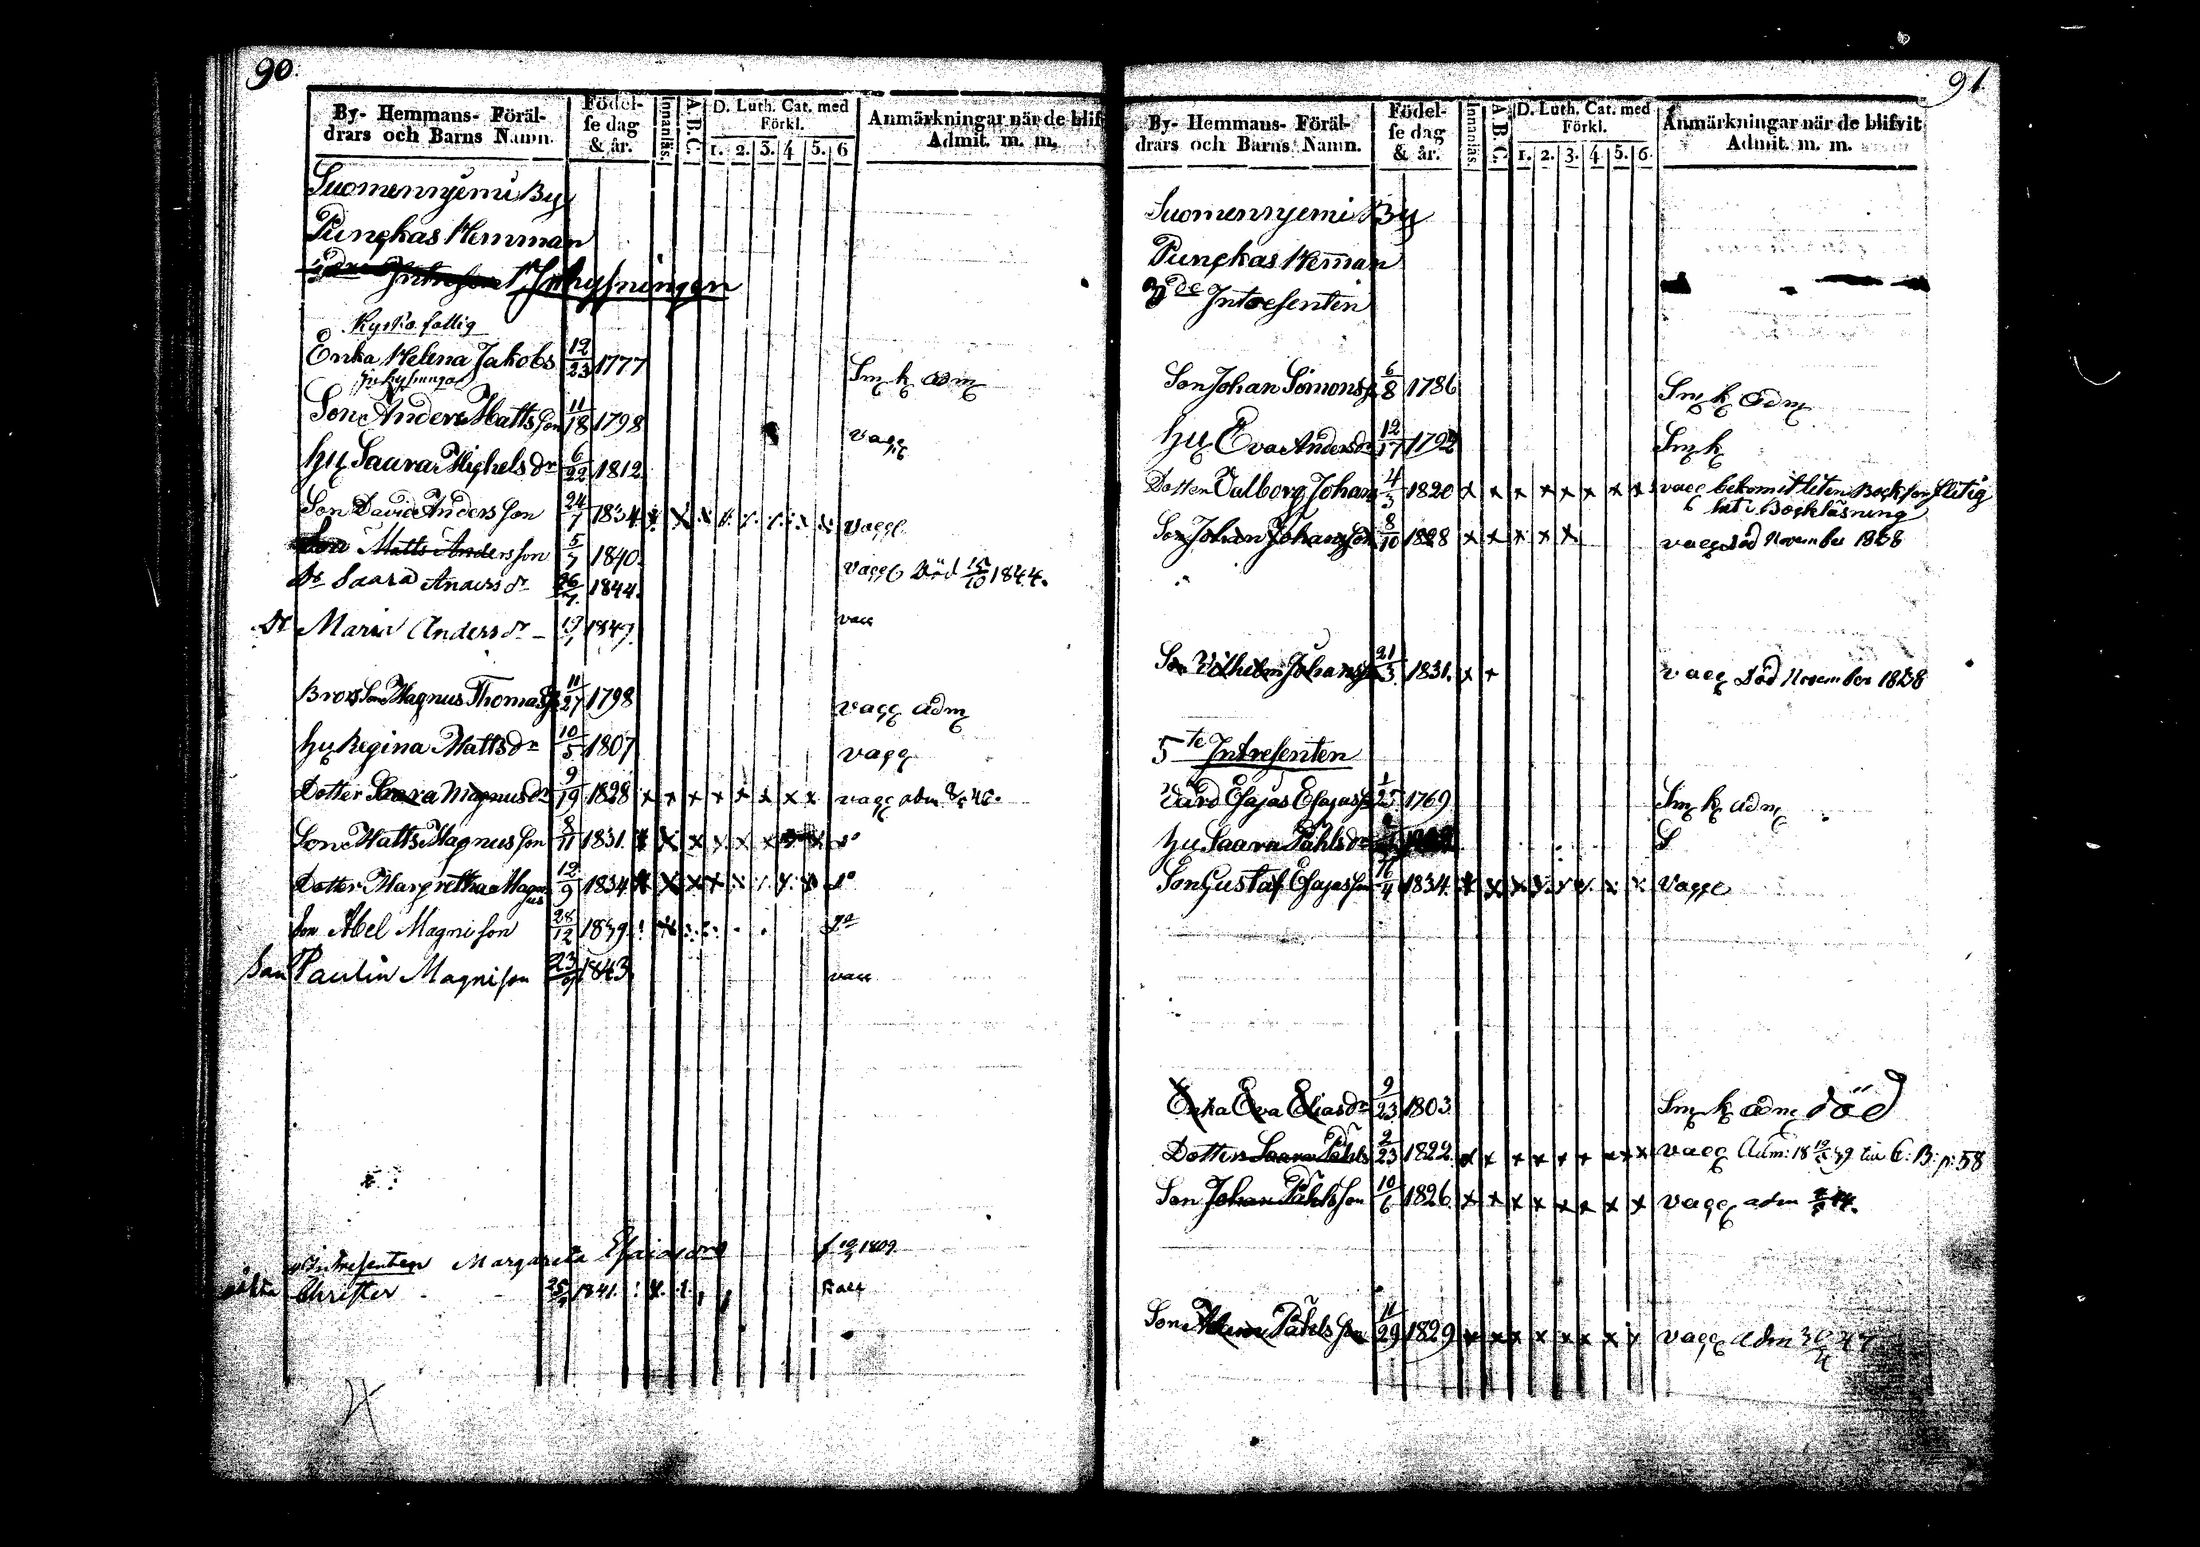 90.
By- Hemmans- Föräl-
drars och Barns Namn.
Födel-
se dag
& år.
Innanläs.
A.B.C.
D. Luth. Cat. med
Förkl.
1. 2. 3. 4 5. 6
Anmärkningar när de blif
Admit. m. m.
Suomennyemi By
Pungkas Hemman
Inhysningen
Enka Helena Jakobs 12/23 1777 Sm k adm
Son Anders Matts son 11/18 1798 vacc
hu Saara Michels dr 6/22 1812
Son David Anders son 24/7 1834 vacc
Son Matts Andersson 5/7 1840. vacc Död 15/10 1844.
Dr Saara Anders dr 26/7 1844.
Dr Maria Anders dr 1847. vacc
Brors Son Magnus Thomas 11/27 1798 vacc adm
hu Regina Matts dr 10/5 1807 vacc
Dotter Saara Magnus dr 9/19 1828 x x x x x x x x vacc adm
Son Matts Magnus son 8/11 1831. x x x x x x do
Dotter Margretha Magnus 12/9 1834 x x x x do
Son Abel Magni son 28/12 1839 do
Son Paulin Magnison 23/9 1843 vacc
Intresenten Margareta 1809
Christer 25/ 1841. vacc
91
By- Hemmans- Föräl-
drars och Barns Namn.
Födel-
se dag
& år.
Innanläs.
A.B.C.
D. Luth. Cat. med
Förkl.
1. 2. 3. 4 5. 6.
Anmärkningar när de blifvit
Admit. m. m.
Suomennyemi By
Pungkas Heman
3de Intresenten
Son Johan Simons 6/8 1786 Sm k adm
hu Eva Anders dr 12/17 1792 Sm k
Dotter Valborg Johans 4/3 1820 x x x x x x x x vacc bekomit liten Bock för flitig
het i Bockläsning
Son Johan Johansson 8/10 1828 x x x x x vacc död November 1838
Son Vilhelm Johans 21/3 1831. x x vacc Död November 1838
5te Intresenten
Värd Esajas Esajas 1/25 1769 Sm k adm
hu Saara Påhls dr S
Son Gustaf Esajasson 16/4 1834. x x x x vacc
Enka Eva Elias dr 9/23 1803. Sm k adm död
Dotter Saara Påhls 2/23 1822. x x x x x x x x vacc Adm: 18 39 C: B: p: 58
Son Johan Påhlsson 10/6 1826 x x x x x x x x vacc adm
Son Påhls son 11/29 1829 x x x x x x x x vacc adm 47